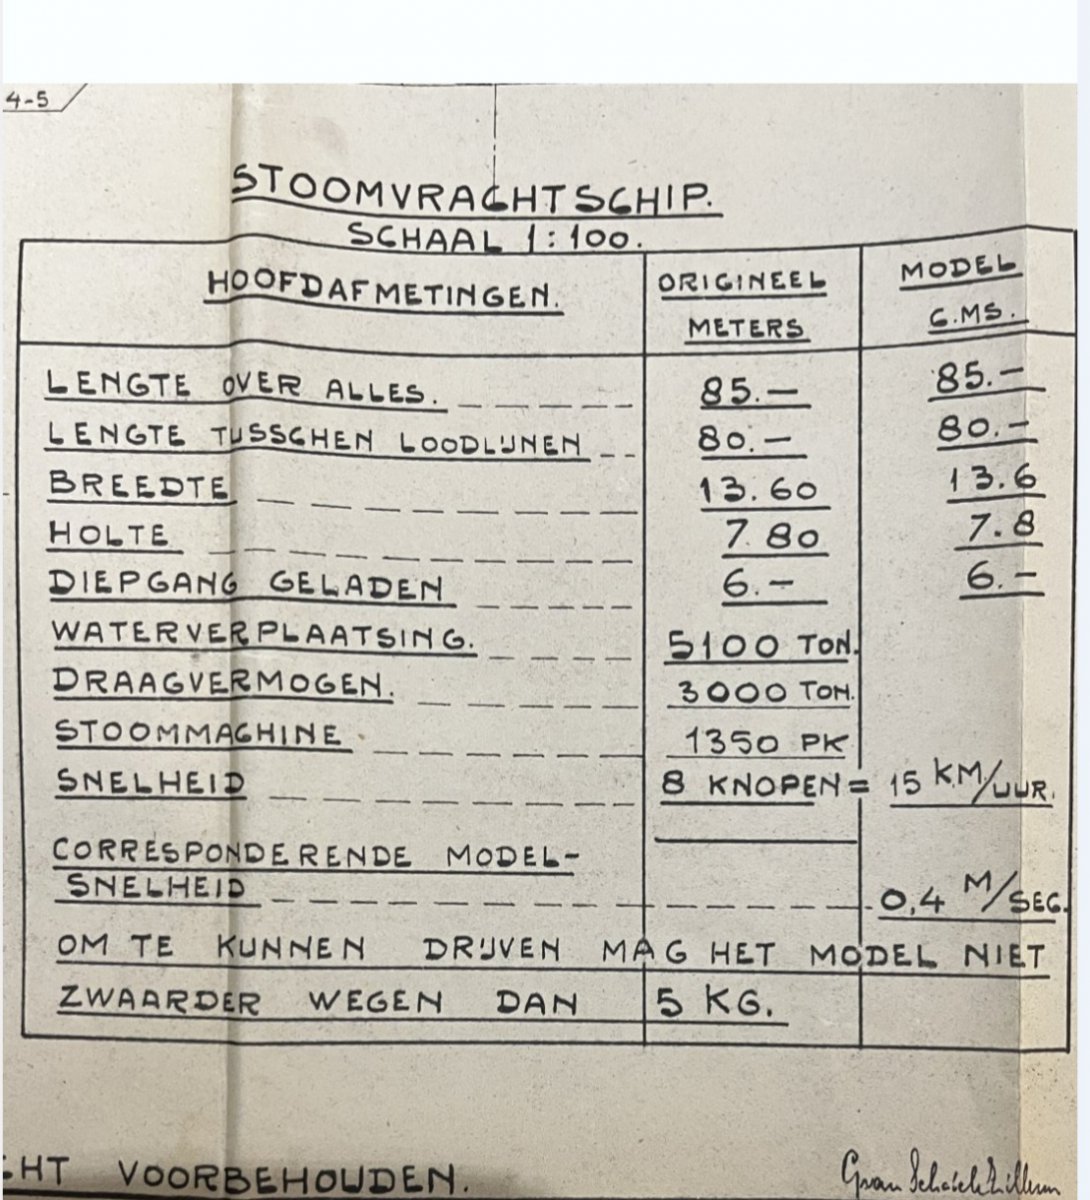 4-5
STOOMVRACHTSCHIP.
SCHAAL 1:100.
HOOFDAFMETINGEN. ORIGINEEL METERS MODEL C.MS.
LENGTE OVER ALLES. 85.— 85.—
LENGTE TUSSCHEN LOODLIJNEN 80.— 80.—
BREEDTE 13.60 13.6
HOLTE 7.80 7.8
DIEPGANG GELADEN 6.— 6.—
WATERVERPLAATSING. 5100 TON.
DRAAGVERMOGEN. 3000 TON.
STOOMMACHINE 1350 PK
SNELHEID 8 KNOPEN = 15 KM/UUR.
CORRESPONDERENDE MODEL-
SNELHEID 0,4 M/SEC.
OM TE KUNNEN DRIJVEN MAG HET MODEL NIET
ZWAARDER WEGEN DAN 5 KG.
CHT VOORBEHOUDEN.